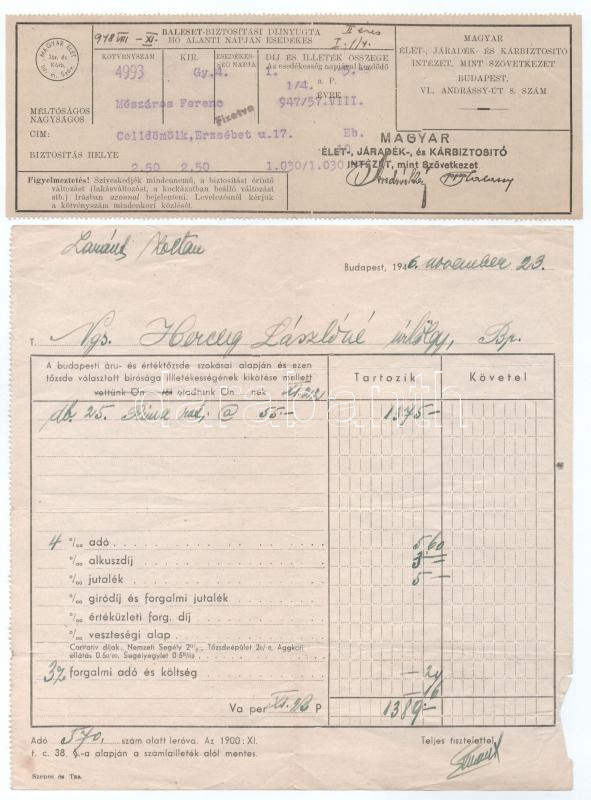 948 VIII — XI.
BALESET-BIZTOSÍTÁSI DÍJNYUGTA
HÓ ALANTI NAPJÁN ESEDÉKES
I. 1/4.
MAGYAR ÉLET
Jár. és
Kárb.
Int. m. Szöv.
KÖTVÉNYSZÁM
KIR.
ESEDÉKES-
SÉG NAPJA
DÍJ ÉS ILLETÉK ÖSSZEGE
Az esedékességgel kezdődő
MAGYAR
ÉLET-, JÁRADÉK- ÉS KÁRBIZTOSITÓ
INTÉZET, MINT SZÖVETKEZET
BUDAPEST,
VI., ANDRÁSSY-ÚT 8. SZÁM
4993 Gy.4. 1. 5.
1/4. a. P.
ÉVRE
MÉLTÓSÁGOS
NAGYSÁGOS
Mészáros Ferenc 947/57.VIII.
Fizetve
CIM: Celldömölk,Erzsébet u.17. Eb.
10
BIZTOSITÁS HELYE
2.50 2.50 1.030/1.030
MAGYAR
ÉLET-, JÁRADÉK-, és KÁRBIZTOSITÓ
INTÉZET, mint Szövetkezet
Figyelmeztetés! Szíveskedjék mindennemű, a biztosítást érintő
változást (lakásváltozást, a kockázatban beálló változást
stb.) írásban azonnal bejelenteni. Levelezésnél kérjük
a kötvényszám mindenkori közlését.
Zoltán
Budapest, 1946. november 23.
T. Ngs. Herceg Lászlóné úrhölgy, Bp.
A budapesti áru- és értéktőzsde szokásai alapján és ezen
tőzsde választott bírósága illetékességének kikötése mellett
vettünk Ön — től eladtunk Ön nek XI. 22
Tartozik
Követel
db. 25. Rima rad, @ 55.— 1375 —
4 ‰ adó 5.60
‰ alkuszdíj 3 —
‰ jutalék 5 —
‰ giródíj és forgalmi jutalék
‰ értéküzleti forg. díj
‰ veszteségi alap
Caritativ díjak, Nemzeti Segély 2‰, Tőzsdeépület 2‰, Aggkori
ellátás 0.5‰, Segélyegylet 0.5‰
3% forgalmi adó és költség — 24
— 16
Va per XI. 23 P 1389.—
Adó 570. szám alatt leróva. Az 1900: XI.
t. c. 38. §.-a alapján a számlailleték alól mentes.
Teljes tisztelettel
Szepes és Tsa.
darabanth